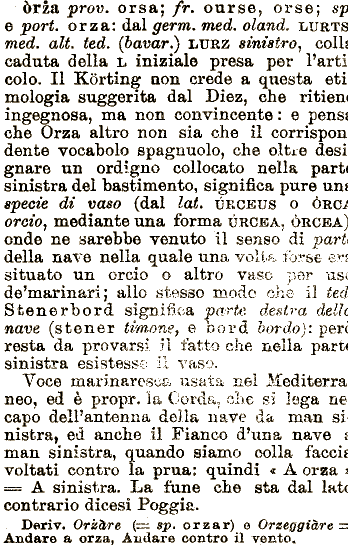 òrża prov. orsa; fr. ourse, orse; sp
e port. orza: dal germ. med. oland. LURTS
med. alt. ted. (bavar.) LURZ sinistro, colla
caduta della L iniziale presa per l'arti
colo. Il Körting non crede a questa eti
mologia suggerita dal Diez, che ritiene
ingegnosa, ma non convincente: e pensa
che Orza altro non sia che il corrispon
dente vocabolo spagnuolo, che oltre desi
gnare un ordigno collocato nella parte
sinistra del bastimento, significa pure una
specie di vaso (dal lat. ÚRCEUS o ÓRCA
orcio, mediante una forma ÚRCEA, ÒRCEA)
onde ne sarebbe venuto il senso di parte
della nave nella quale una volta forse era
situato un orcio o altro vaso per uso
de'marinari; allo stesso modo che il ted
Stenerbord significa parte destra della
nave (stener timone, e bord bordo): però
resta da provarsi il fatto che nella parte
sinistra esistesse il vaso.
Voce marinaresca usata nel Mediterra
neo, ed è propr. la Corda, che si lega ne
capo dell'antenna della nave da man si
nistra, ed anche il Fianco d'una nave a
man sinistra, quando siamo colla faccia
voltati contro la prua: quindi « A orza »
= A sinistra. La fune che sta dal lato
contrario dicesi Poggia.
Deriv. Orżàre (= sp. orzar) e Orzeggiàre =
Andare a orza, Andare contro il vento.